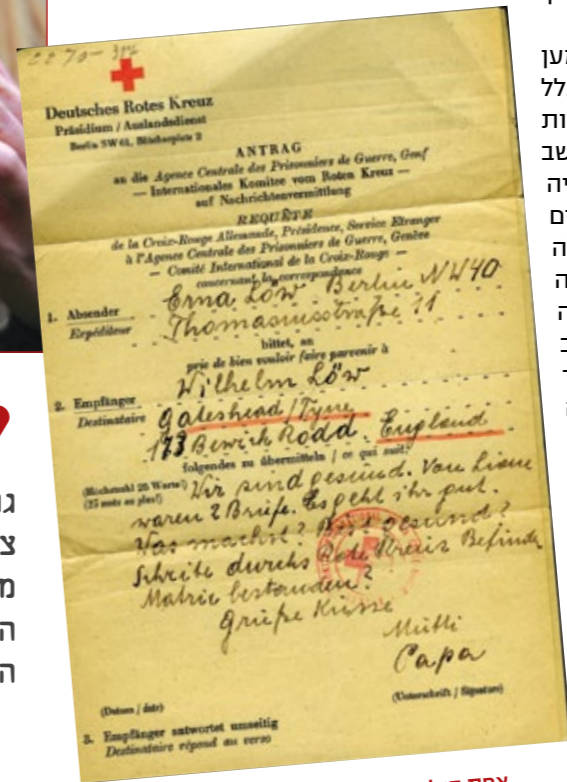 CZ 70-
Deutsches Rotes Kreuz
Präsidium / Auslandsdienst
Berlin SW 61, Blücherplatz 2
ANTRAG
an die Agence Centrale des Prisonniers de Guerre, Genf
— Internationales Komitee vom Roten Kreuz —
auf Nachrichtenvermittlung
REQUÊTE
de la Croix-Rouge Allemande, Présidence, Service Etranger
à l'Agence Centrale des Prisonniers de Guerre, Genève
— Comité International de la Croix-Rouge —
concernant la correspondance
1. Absender Erna Löw Berlin NW40
Expéditeur Thomasiusstraße 11
bittet, an
prie de bien vouloir faire parvenir à
2. Empfänger Wilhelm Löw
Destinataire Gateshead/Tyne
173 Bewick Rodd England
folgendes zu übermitteln / ce qui suit:
(Höchstzahl 25 Worte!) Wir sind gesund. Von Liane
(25 mots au plus!) waren 2 Briefe. Es geht ihr gut.
Was machst? Bist gesund?
Schreibe durchs Rote Kreuz Befinden
Matric bestanden?
Grüße Küsse
Mutti
Papa
(Datum / date) (Unterschrift / Signature)
3. Empfänger antwortet umseitig
Destinataire répond au verso